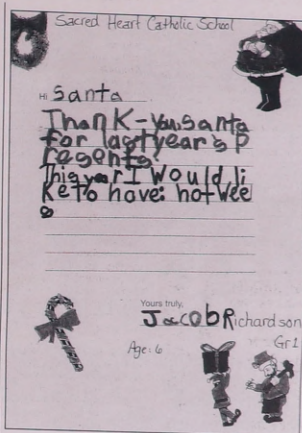 Sacred Heart Catholic School
Hi Santa
Thank-You, Santa
for last year's P
resents!
This year I Would li
Ke to have: hot wee
Yours truly,
Jacob Richardson
Age: 6 Gr 1